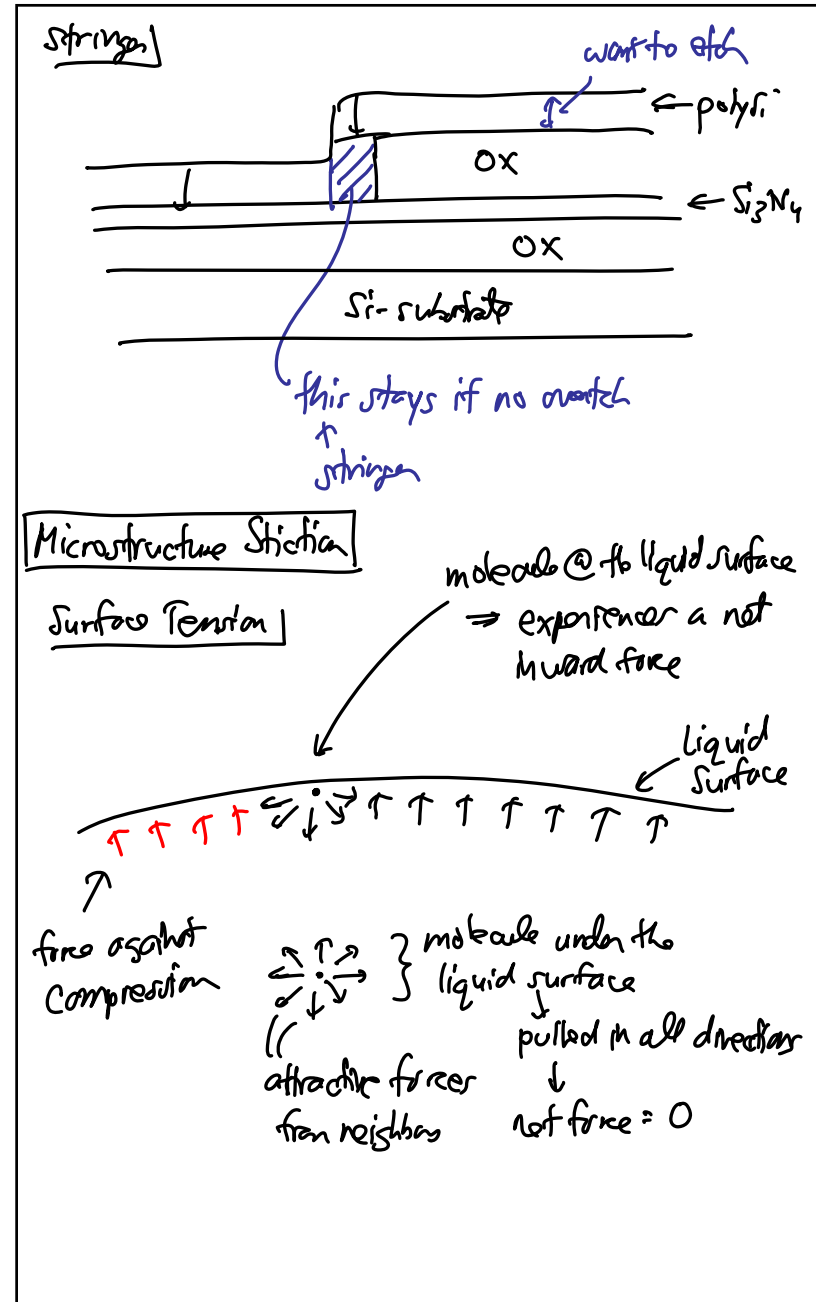 Stringer
want to etch
polySi
OX
Si3N4
OX
Si-substrate
this stays if no overetch
stringer
Microstructure Stiction
molecule @ the liquid surface
Surface Tension
⇒ experiences a net
inward force
liquid
surface
force against
compression
} molecule under the
liquid surface
pulled in all directions
attractive forces
from neighbors
net force = 0